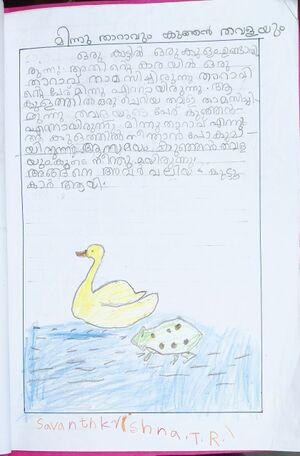 മിന്നു താറാവും കുഞ്ഞൻ തവളയും
ഒരു കാട്ടിൽ ഒരു കുളം ഉണ്ടായി
രുന്നു. അതിന്റെ കരയിൽ ഒരു
താറാവ് താമസിച്ചിരുന്നു താറാവി
ന്റെ പേര് മിന്നു എന്നായിരുന്നു. ആ
കുളത്തിൽ ഒരു ചെറിയ തവള താമസിച്ചി
രുന്നു തവളയുടെ പേര് കുഞ്ഞൻ
എന്നായിരുന്നു. മിന്നു താറാവ് എന്നും
ആ കുളത്തിൽ നീന്താൻ പോകുമാ
യിരുന്നു. ആ സമയം കുഞ്ഞൻ തവള
യും കൂടെ നീന്തുമായിരുന്നു.
അങ്ങനെ അവർ വലിയ കൂട്ടു
കാർ ആയി.
Savanthkrishna.T.R